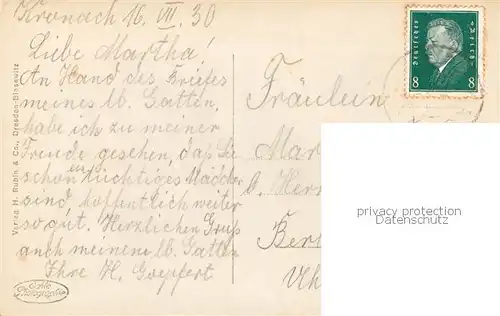 Kronach 16. VII. 30
Liebe Martha!
An Hand des Briefes
meines lb. Gatten,
habe ich zu meiner
Freude gesehen, daß Sie
schon ein tüchtiges Mädchen
sind hoffentlich weiter
so gut. Herzlichen Gruß
auch meinem lb. Gatten
Ihre H. Goepfert
Fräulein
Mar
b. Herr
Ber
Uh
Deutsches Reich
8 8
privacy protection
Datenschutz
Verlag H. Rubin & Co., Dresden-Blasewitz
Echte Photographie